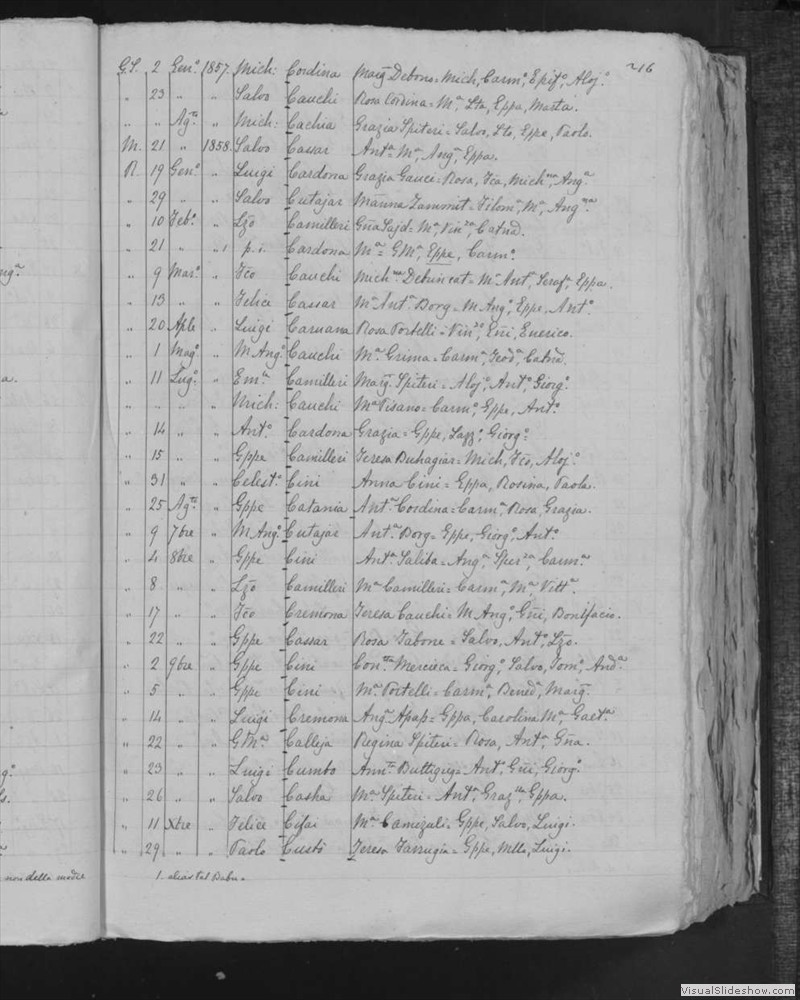 216
G.S. 2 Genº 1857. Mich: Cordina Marg. Debono = Mich, Carmº, Epifº, Alojº.
" 23 " " Salvo Cauchi Rosa Cordina = Mª, Eppa, Marta.
" " Agto " Mich: Cachia Grazia Spiteri = Salvo, Eppe, Paolo.
M. 21 " 1858. Salvo Cassar Antª = Mª, Angª, Eppa.
R. 19 Genº " Luigi Cardona Grazia Gauci = Rosa, Fca, Michna, Angª
" 29 " " Salvo Cutajar Zammit = Filomª, Mª,
" 10 Febº " Lzo Camilleri Gña Sajd = Mª, Catnª.
" 21 " " 1 p. i. Cardona Mª = GMª, Eppe, Carmº.
" 9 Marº " Fco Cauchi Debuncat = Mª Antª, Serafª, Eppa.
" 13 " " Felice Cassar Mª Antª Borg = M Angº, Eppe, Antº.
" 20 Aple " Luigi Caruana Rosa Portelli = Eñi,
" 1 Magº " M Angº Cauchi Mª Grima = Carmª, Teodª, Catnª.
" 11 Lugº " Emª. Camilleri Marg. Spiteri = Alojº, Antº, Giorgº.
" " " " Mich: Cauchi Mª Pisano = Carmº, Gppe, Antº.
" 14 " " Antº Cardona Grazia = Gppe, Lazzº, Giorgº.
" 15 " " Gppe Camilleri Teresa Buhagiar = Mich, Fco, Alojº.
" 31 " " Celestº Cini Anna Cini = Eppa, Rosina, Paola.
" 25 Agto " Gppe Catania Antª Cordina = Carmª, Rosa, Grazia.
" 9 7bre " M Angº Cutajar Antª Borg = Gppe, Giorgº, Antº.
" 4 8bre " Gppe Cini Antª Saliba = Angª, Carmna
" 8 " " Lzo Camilleri Mª Camilleri = Carmª, Mª, Vittª.
" 17 " " Fco Cremona Teresa Cauchi = M Angº, Gñi, Bonifacio.
" 22 " " Gppe Cassar Rosa Tabone = Salvo, Antº, Lzo.
" 2 9bre " Gppe Cini Mercieca = Giorgº, Salvo, Andª.
" 5 " " Gppe Cini Mª Portelli = Carmª, Benedª, Marg.
" 14 " " Luigi Cremona Angª Apap = Gppa, Carolina Mª, Gaetª.
" 22 " " Calleja Regina Spiteri = Rosa, Antª, Gña.
" 23 " " Luigi Cumbo Buttigieg = Antº, Gñi, Giorgº.
" 26 " " Salvo Casha Mª Spiteri = Antª, Grazlla, Gppa.
" 11 Xbre " Felice Cifai Mª Camizuli = Gppe, Salvo, Luigi.
" 29 " " Paolo Custò Teresa Farrugia = Gppe, Luigi.
non della madre
1. alias tal
VisualSlideshow.com